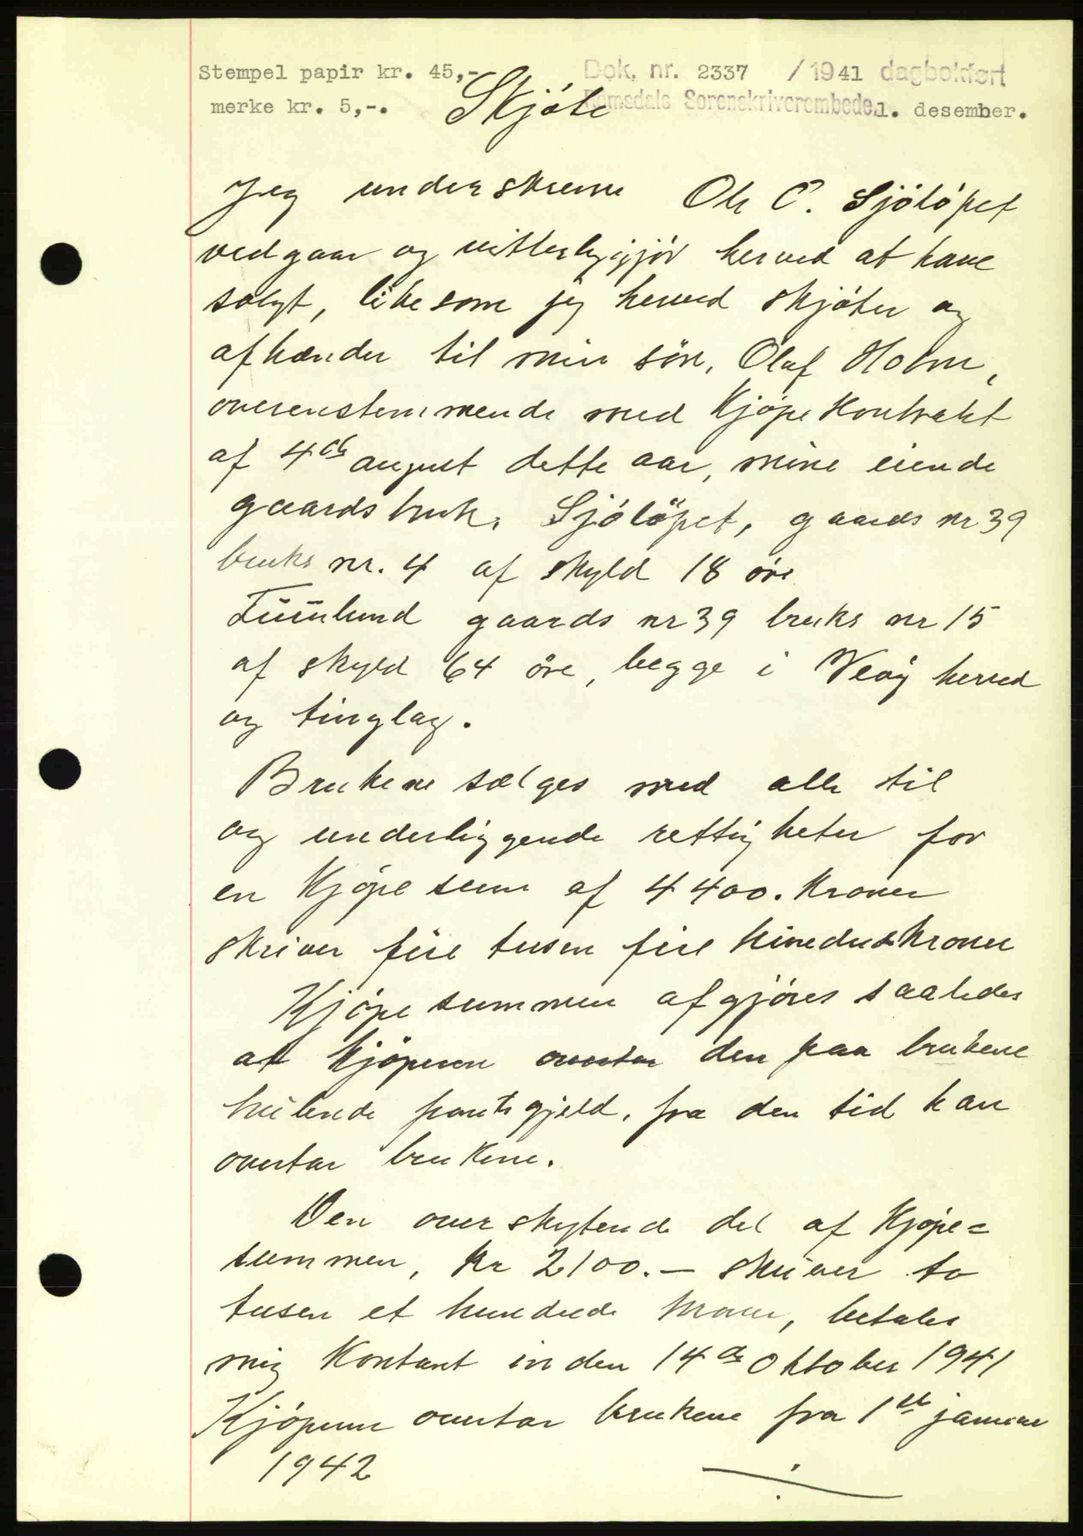 Stempel papir kr. 45,-
merke kr. 5,-.
Dok. nr. 2337 /1941 dagbokført
Romsdals Sorenskriverembede 1. desember.
Skjöte
Jeg underskrevne Ole O. Sjöløpet
vedgaar og vitterliggjør herved at have
solgt, likesom jeg herved skjøter og
afhænder til min søn, Olaf Holm,
overenstemmende med Kjøpekontrakt
af 4de august dette aar, mine eiende
gaardsbruk, Sjöløpet, gaards nr 39
bruks nr. 4 af skyld 18 øre
gaards nr 39 bruks nr 15
af skyld 64 øre, begge i Veøy herred
og tinglag.
Brukene sælges med alle til
og underliggende rettigheter for
en Kjøpesum af 4400. Kroner
skriver fire tusen fire hundredekroner
Kjøpesummen afgjøres saaledes
at kjøperen overtar den paa brukene
hvilende pantegjeld, fra den tid han
overtar brukene.
Den overskytende del af Kjøpe=
summen, Kr 2100.- skriver to
tusen et hundrede kroner, betales
mig Kontant inden 14de Oktober 1941
Kjøperen overtar brukene fra 1ste januar
1942